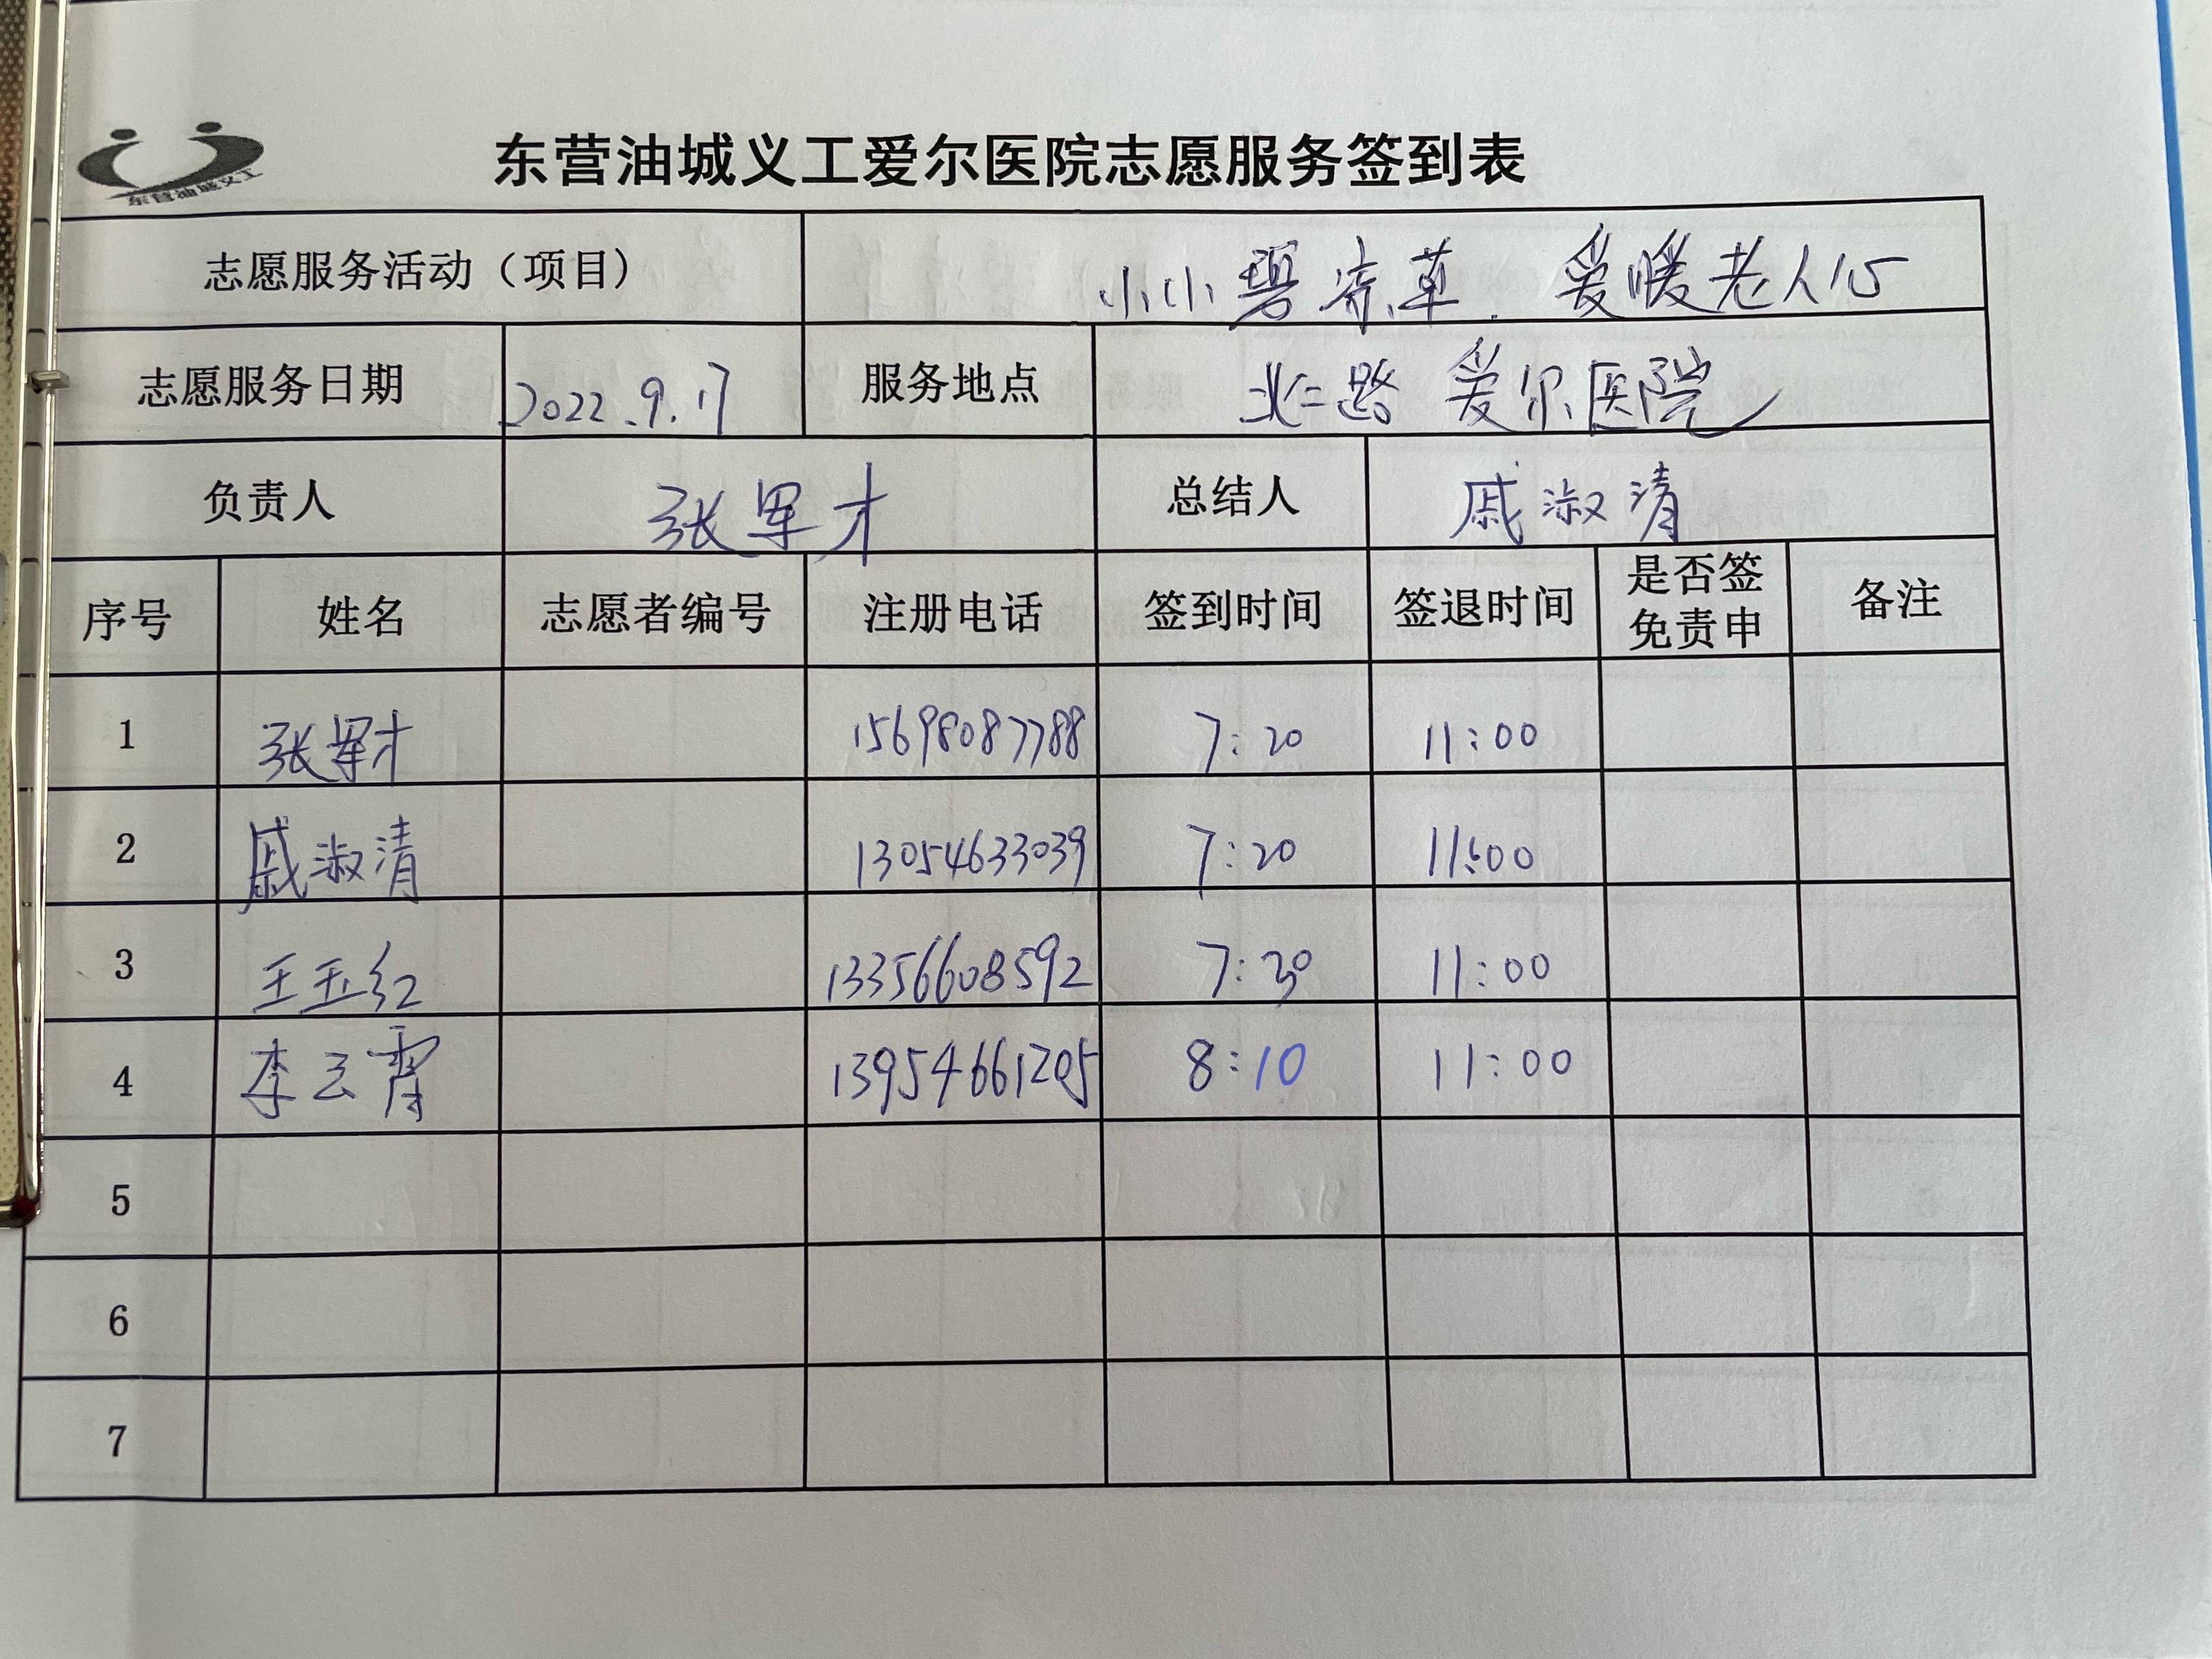 东营油城义工
东营油城义工爱尔医院志愿服务签到表
志愿服务活动（项目） 小小碧寄草．爱暖老人心
志愿服务日期 2022.9.17 服务地点 北二路 爱尔医院
负责人 张军才 总结人 戚淑清
序号 姓名 志愿者编号 注册电话 签到时间 签退时间 是否签免责申 备注
1 张军才 15698087788 7:20 11:00
2 戚淑清 13054633039 7:20 11:00
3 王玉红 13356608592 7:30 11:00
4 李云霄 13954661205 8:10 11:00
5
6
7